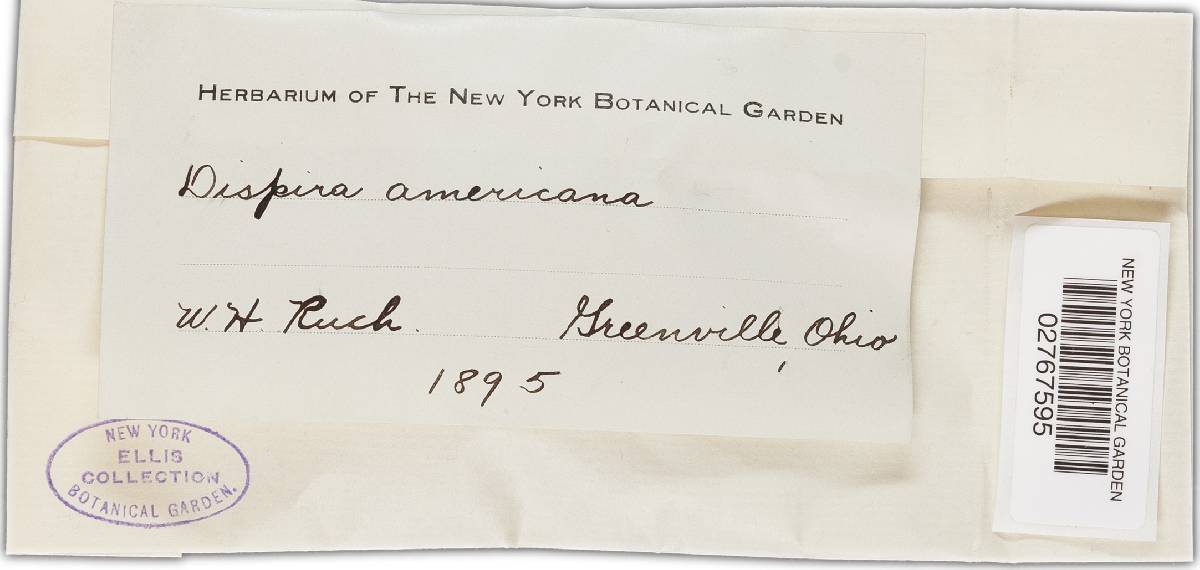 HERBARIUM OF THE NEW YORK BOTANICAL GARDEN
Dispira americana
W. H. Ruch. Greenville, Ohio
1895
NEW YORK
ELLIS
COLLECTION
BOTANICAL GARDEN.
NEW YORK BOTANICAL GARDEN
02767595